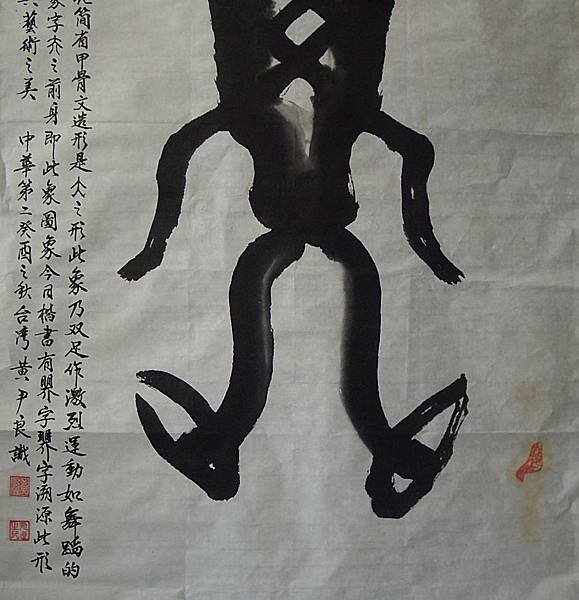 简有甲骨文造形是之形此象乃双足作激烈運動如舞蹈的
字亣之前身即此象圖象今日楷書有字字溯源此形
藝術之美 中華第二癸酉之秋台湾黄尹良識